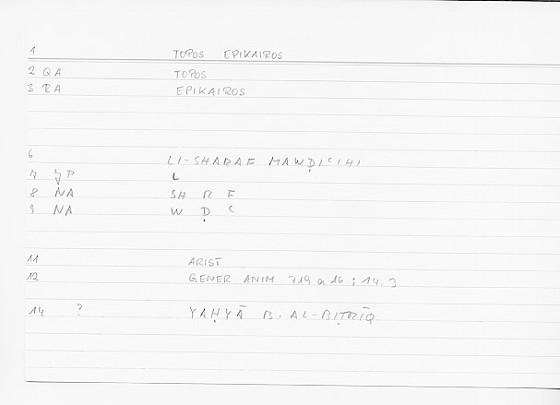 1 TOPOS EPIKAIROS
2 QA TOPOS
3 RA EPIKAIROS
6 LI-SHARAF MAWḌIʿIHI
7 JP L
8 NA SH R F
9 NA W Ḍ ʿ
11 ARIST
12 GENER ANIM 719 a 16 ; 14.3
14 ? YAḤYĀ B. AL-BIṬRĪQ